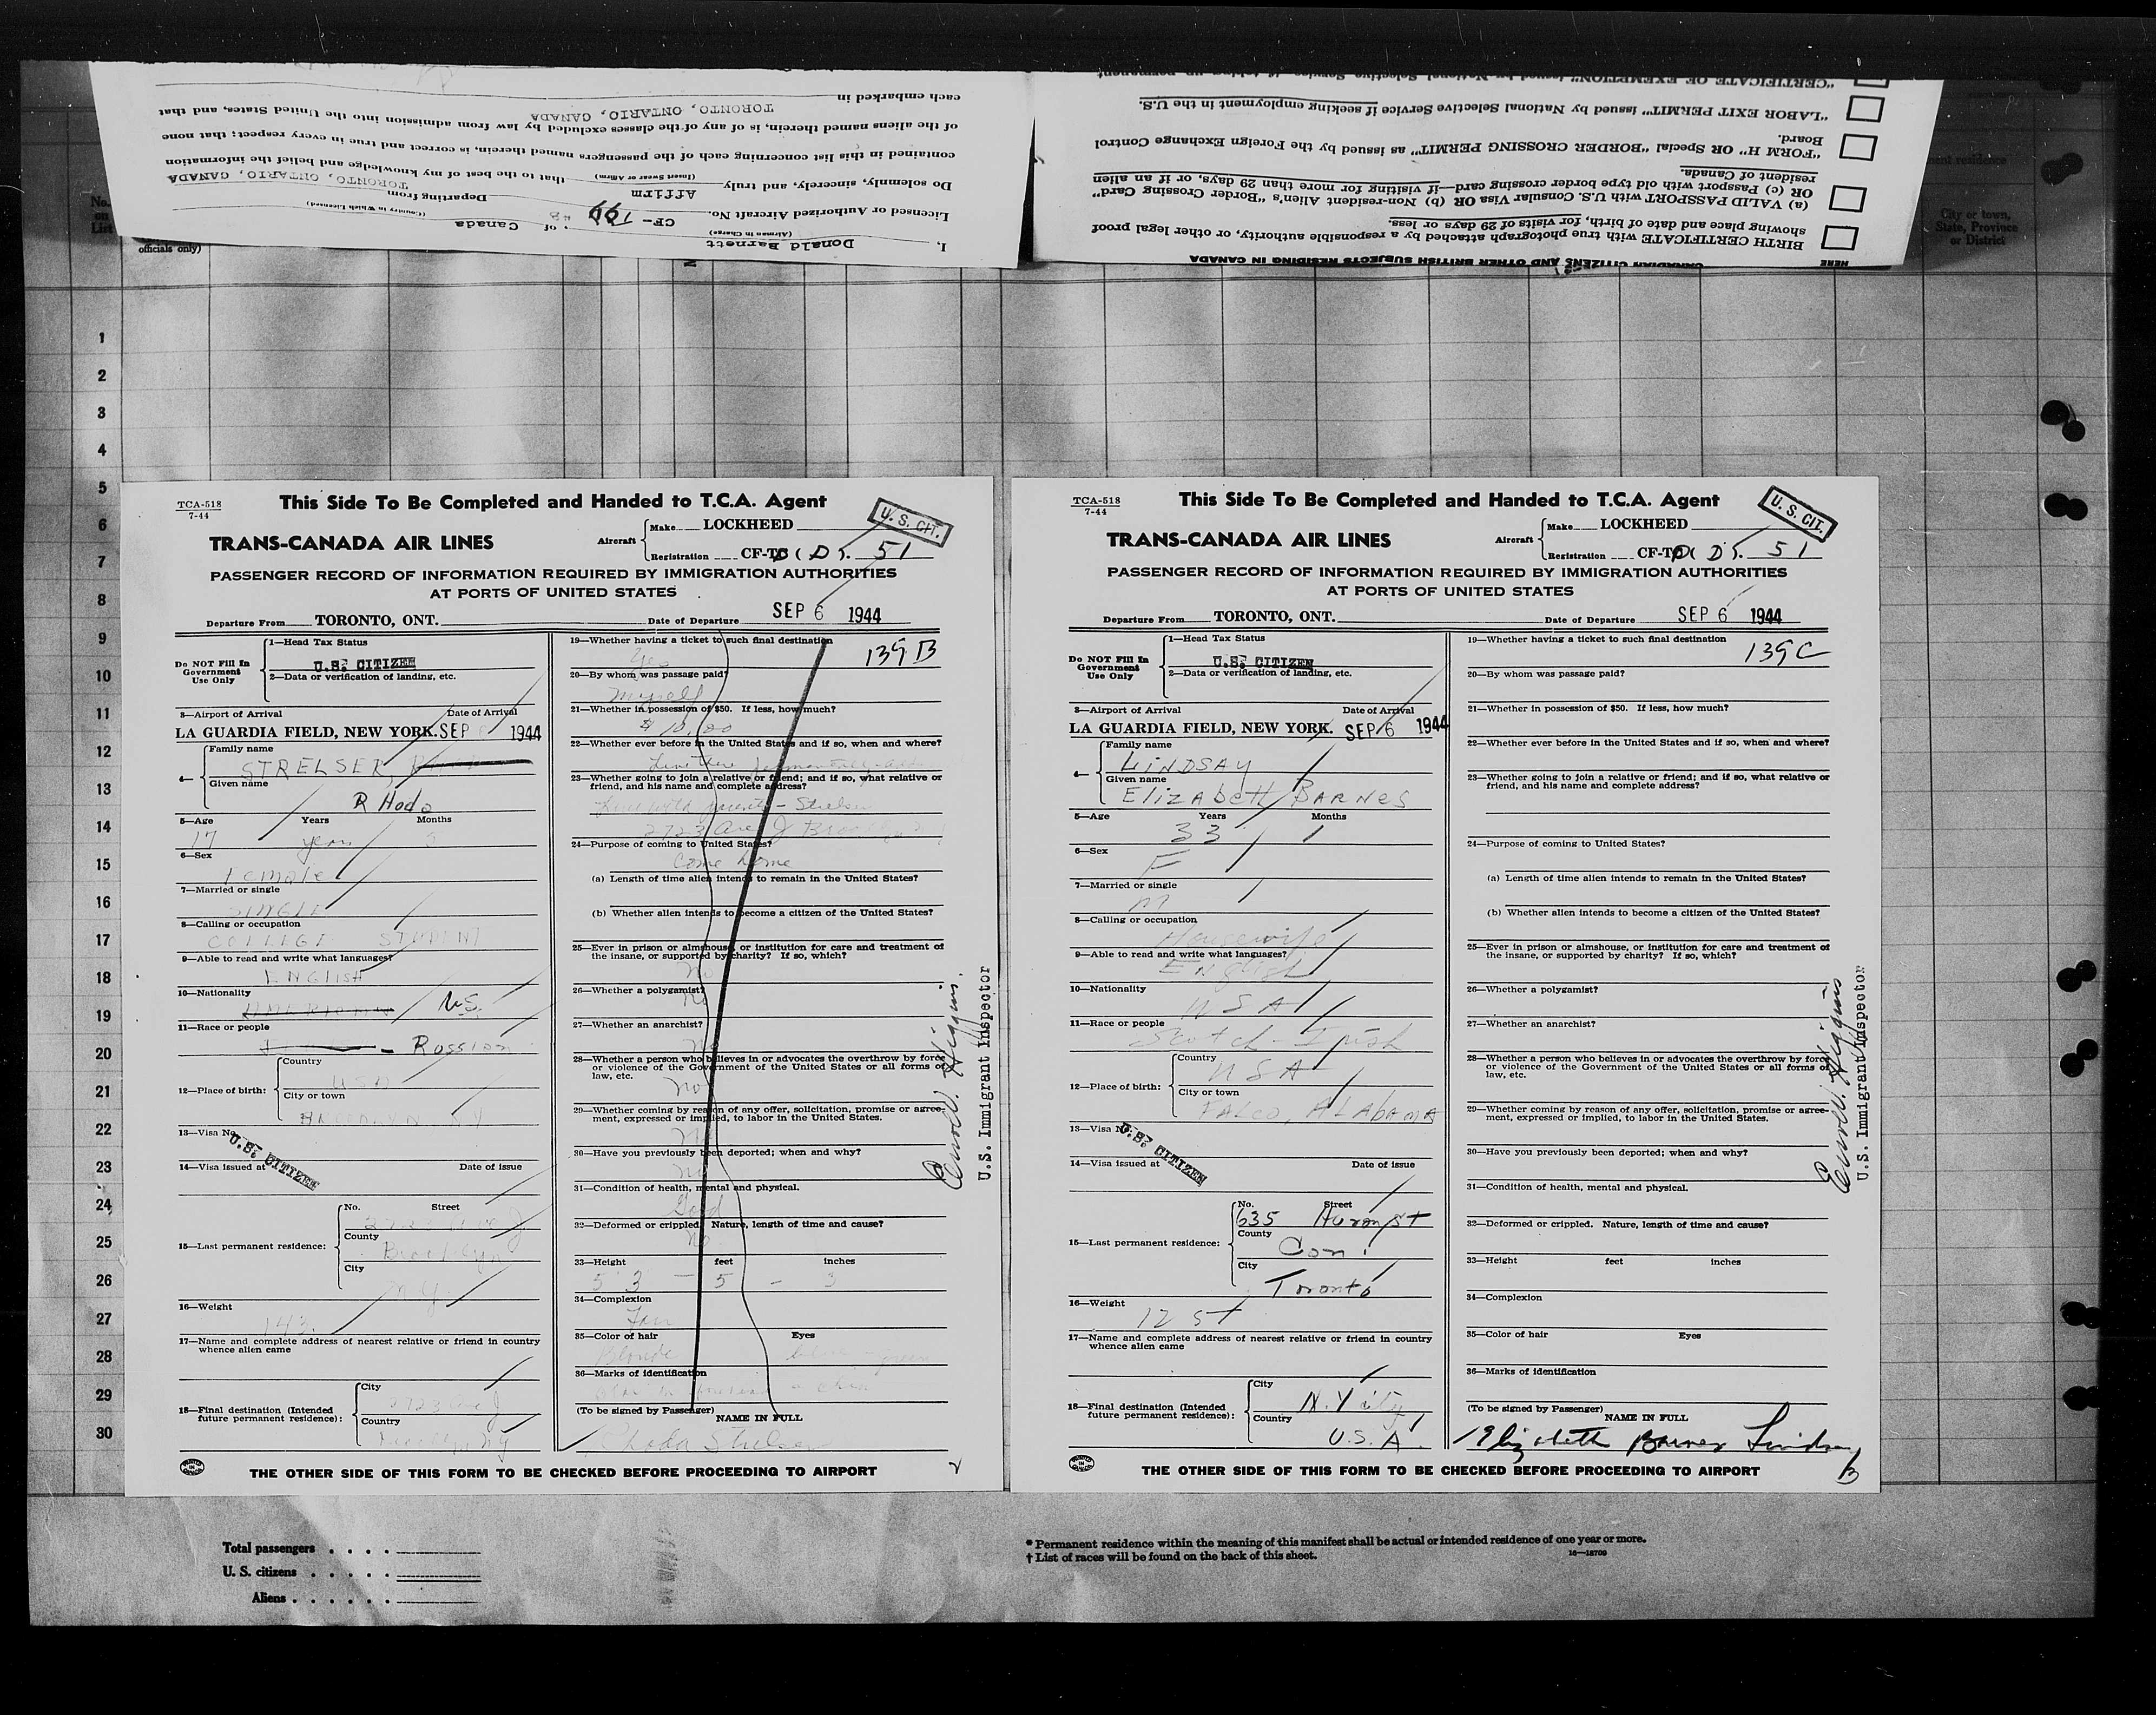 each embarked in
TORONTO, ONTARIO, CANADA
of the aliens named therein, is of any of the classes excluded by law from admission into the United States, and that
contained in this list concerning each of the passengers named therein, is correct and true in every respect; that none
Do solemnly, sincerely, and truly Affirm that to the best of my knowledge and belief the information
(Insert Swear or Affirm)
Licensed or Authorized Aircraft No. CF- Departing from TORONTO, ONTARIO, CANADA
I, Donald Barnett, of Canada
(Airman in Charge) (Country in Which Licensed)
"CERTIFICATE OF EXEMPTION" issued by National Selective Service if taking up permanent
"LABOR EXIT PERMIT" issued by National Selective Service if seeking employment in the U.S.
"FORM H" OR Special "BORDER CROSSING PERMIT" as issued by the Foreign Exchange Control
Board.
(a) VALID PASSPORT with U.S. Consular Visa OR (b) Non-resident Alien's "Border Crossing Card"
OR (c) Passport with old type border crossing card—if visiting for more than 29 days, or if an alien
resident of Canada.
BIRTH CERTIFICATE with true photograph attached by a responsible authority, or other legal proof
showing place and date of birth, for visits of 29 days or less.
CANADIAN CITIZENS AND OTHER BRITISH SUBJECTS RESIDING IN CANADA
HERE
No.
on
List
officials only)
residence
City or town,
State, Province
or District
1
2
3
4
5
6
7
8
9
10
11
12
13
14
15
16
17
18
19
20
21
22
23
24
25
26
27
28
29
30
TCA-518
7-44
This Side To Be Completed and Handed to T.C.A. Agent
U. S. CIT.
TRANS-CANADA AIR LINES
Aircraft
Make LOCKHEED
Registration CF-TC 51
PASSENGER RECORD OF INFORMATION REQUIRED BY IMMIGRATION AUTHORITIES
AT PORTS OF UNITED STATES
Departure From TORONTO, ONT. Date of Departure SEP 6 1944
Do NOT Fill In
Government
Use Only
1—Head Tax Status
U.S. CITIZEN
2—Data or verification of landing, etc.
3—Airport of Arrival Date of Arrival
LA GUARDIA FIELD, NEW YORK. SEP 1944
4—
Family name
STRELSER,
Given name
RHoda
5—Age Years Months
17 years 5
6—Sex
Female
7—Married or single
SINGLE
8—Calling or occupation
COLLEGE STUDENT
9—Able to read and write what languages?
ENGLISH
10—Nationality
U.S.
11—Race or people
Russian
12—Place of birth:
Country
USA
City or town
BROOKLYN NY
13—Visa No.
U.S. CITIZEN
14—Visa issued at Date of issue
15—Last permanent residence:
No. Street
2723 Ave J
County
Brooklyn
City
NY
16—Weight
143
17—Name and complete address of nearest relative or friend in country
whence alien came
18—Final destination (Intended
future permanent residence):
City
2723 Ave J
Country
Brooklyn NY
19—Whether having a ticket to such final destination
Yes
139 B
20—By whom was passage paid?
myself
21—Whether in possession of $50. If less, how much?
$10.00
22—Whether ever before in the United States and if so, when and where?
Live there permanently
23—Whether going to join a relative or friend; and if so, what relative or
friend, and his name and complete address?
Live with parents - Strelser
2723 Ave J Brooklyn
24—Purpose of coming to United States?
Come home
(a) Length of time alien intends to remain in the United States?
(b) Whether alien intends to become a citizen of the United States?
25—Ever in prison or almshouse, or institution for care and treatment of
the insane, or supported by charity? If so, which?
No
26—Whether a polygamist?
No
27—Whether an anarchist?
No
28—Whether a person who believes in or advocates the overthrow by force
or violence of the Government of the United States or all forms of
law, etc.
No
29—Whether coming by reason of any offer, solicitation, promise or agree-
ment, expressed or implied, to labor in the United States.
No
30—Have you previously been deported; when and why?
No
31—Condition of health, mental and physical.
Good
32—Deformed or crippled. Nature, length of time and cause?
No
33—Height feet inches
5 3 — 5 - 3
34—Complexion
Fair
35—Color of hair Eyes
Blonde blue - green
36—Marks of identification
(To be signed by Passenger)
NAME IN FULL
Rhoda Strelser
U.S. Immigrant Inspector
THE OTHER SIDE OF THIS FORM TO BE CHECKED BEFORE PROCEEDING TO AIRPORT
2
TCA-518
7-44
This Side To Be Completed and Handed to T.C.A. Agent
U. S. CIT.
TRANS-CANADA AIR LINES
Aircraft
Make LOCKHEED
Registration CF-TC 51
PASSENGER RECORD OF INFORMATION REQUIRED BY IMMIGRATION AUTHORITIES
AT PORTS OF UNITED STATES
Departure From TORONTO, ONT. Date of Departure SEP 6 1944
Do NOT Fill In
Government
Use Only
1—Head Tax Status
U.S. CITIZEN
2—Data or verification of landing, etc.
3—Airport of Arrival Date of Arrival
LA GUARDIA FIELD, NEW YORK. SEP 6 1944
4—
Family name
LINDSAY
Given name
ElizAbeth BARNES
5—Age Years Months
33 1
6—Sex
F
7—Married or single
M
8—Calling or occupation
Housewife
9—Able to read and write what languages?
English
10—Nationality
USA
11—Race or people
Scotch-Irish
12—Place of birth:
Country
USA
City or town
FALCO, ALAbAMA
13—Visa No.
U.S. CITIZEN
14—Visa issued at Date of issue
15—Last permanent residence:
No. Street
635 Huron St
County
Can.
City
Toronto
16—Weight
12 st
17—Name and complete address of nearest relative or friend in country
whence alien came
18—Final destination (Intended
future permanent residence):
City
N.Y City
Country
U.S.A.
19—Whether having a ticket to such final destination
139 C
20—By whom was passage paid?
21—Whether in possession of $50. If less, how much?
22—Whether ever before in the United States and if so, when and where?
23—Whether going to join a relative or friend; and if so, what relative or
friend, and his name and complete address?
24—Purpose of coming to United States?
(a) Length of time alien intends to remain in the United States?
(b) Whether alien intends to become a citizen of the United States?
25—Ever in prison or almshouse, or institution for care and treatment of
the insane, or supported by charity? If so, which?
26—Whether a polygamist?
27—Whether an anarchist?
28—Whether a person who believes in or advocates the overthrow by force
or violence of the Government of the United States or all forms of
law, etc.
29—Whether coming by reason of any offer, solicitation, promise or agree-
ment, expressed or implied, to labor in the United States.
30—Have you previously been deported; when and why?
31—Condition of health, mental and physical.
32—Deformed or crippled. Nature, length of time and cause?
33—Height feet inches
34—Complexion
35—Color of hair Eyes
36—Marks of identification
(To be signed by Passenger)
NAME IN FULL
Elizabeth Barnes Lindsay
U.S. Immigrant Inspector
THE OTHER SIDE OF THIS FORM TO BE CHECKED BEFORE PROCEEDING TO AIRPORT
Total passengers
U. S. citizens
Aliens
* Permanent residence within the meaning of this manifest shall be actual or intended residence of one year or more.
† List of races will be found on the back of this sheet.
16—18700